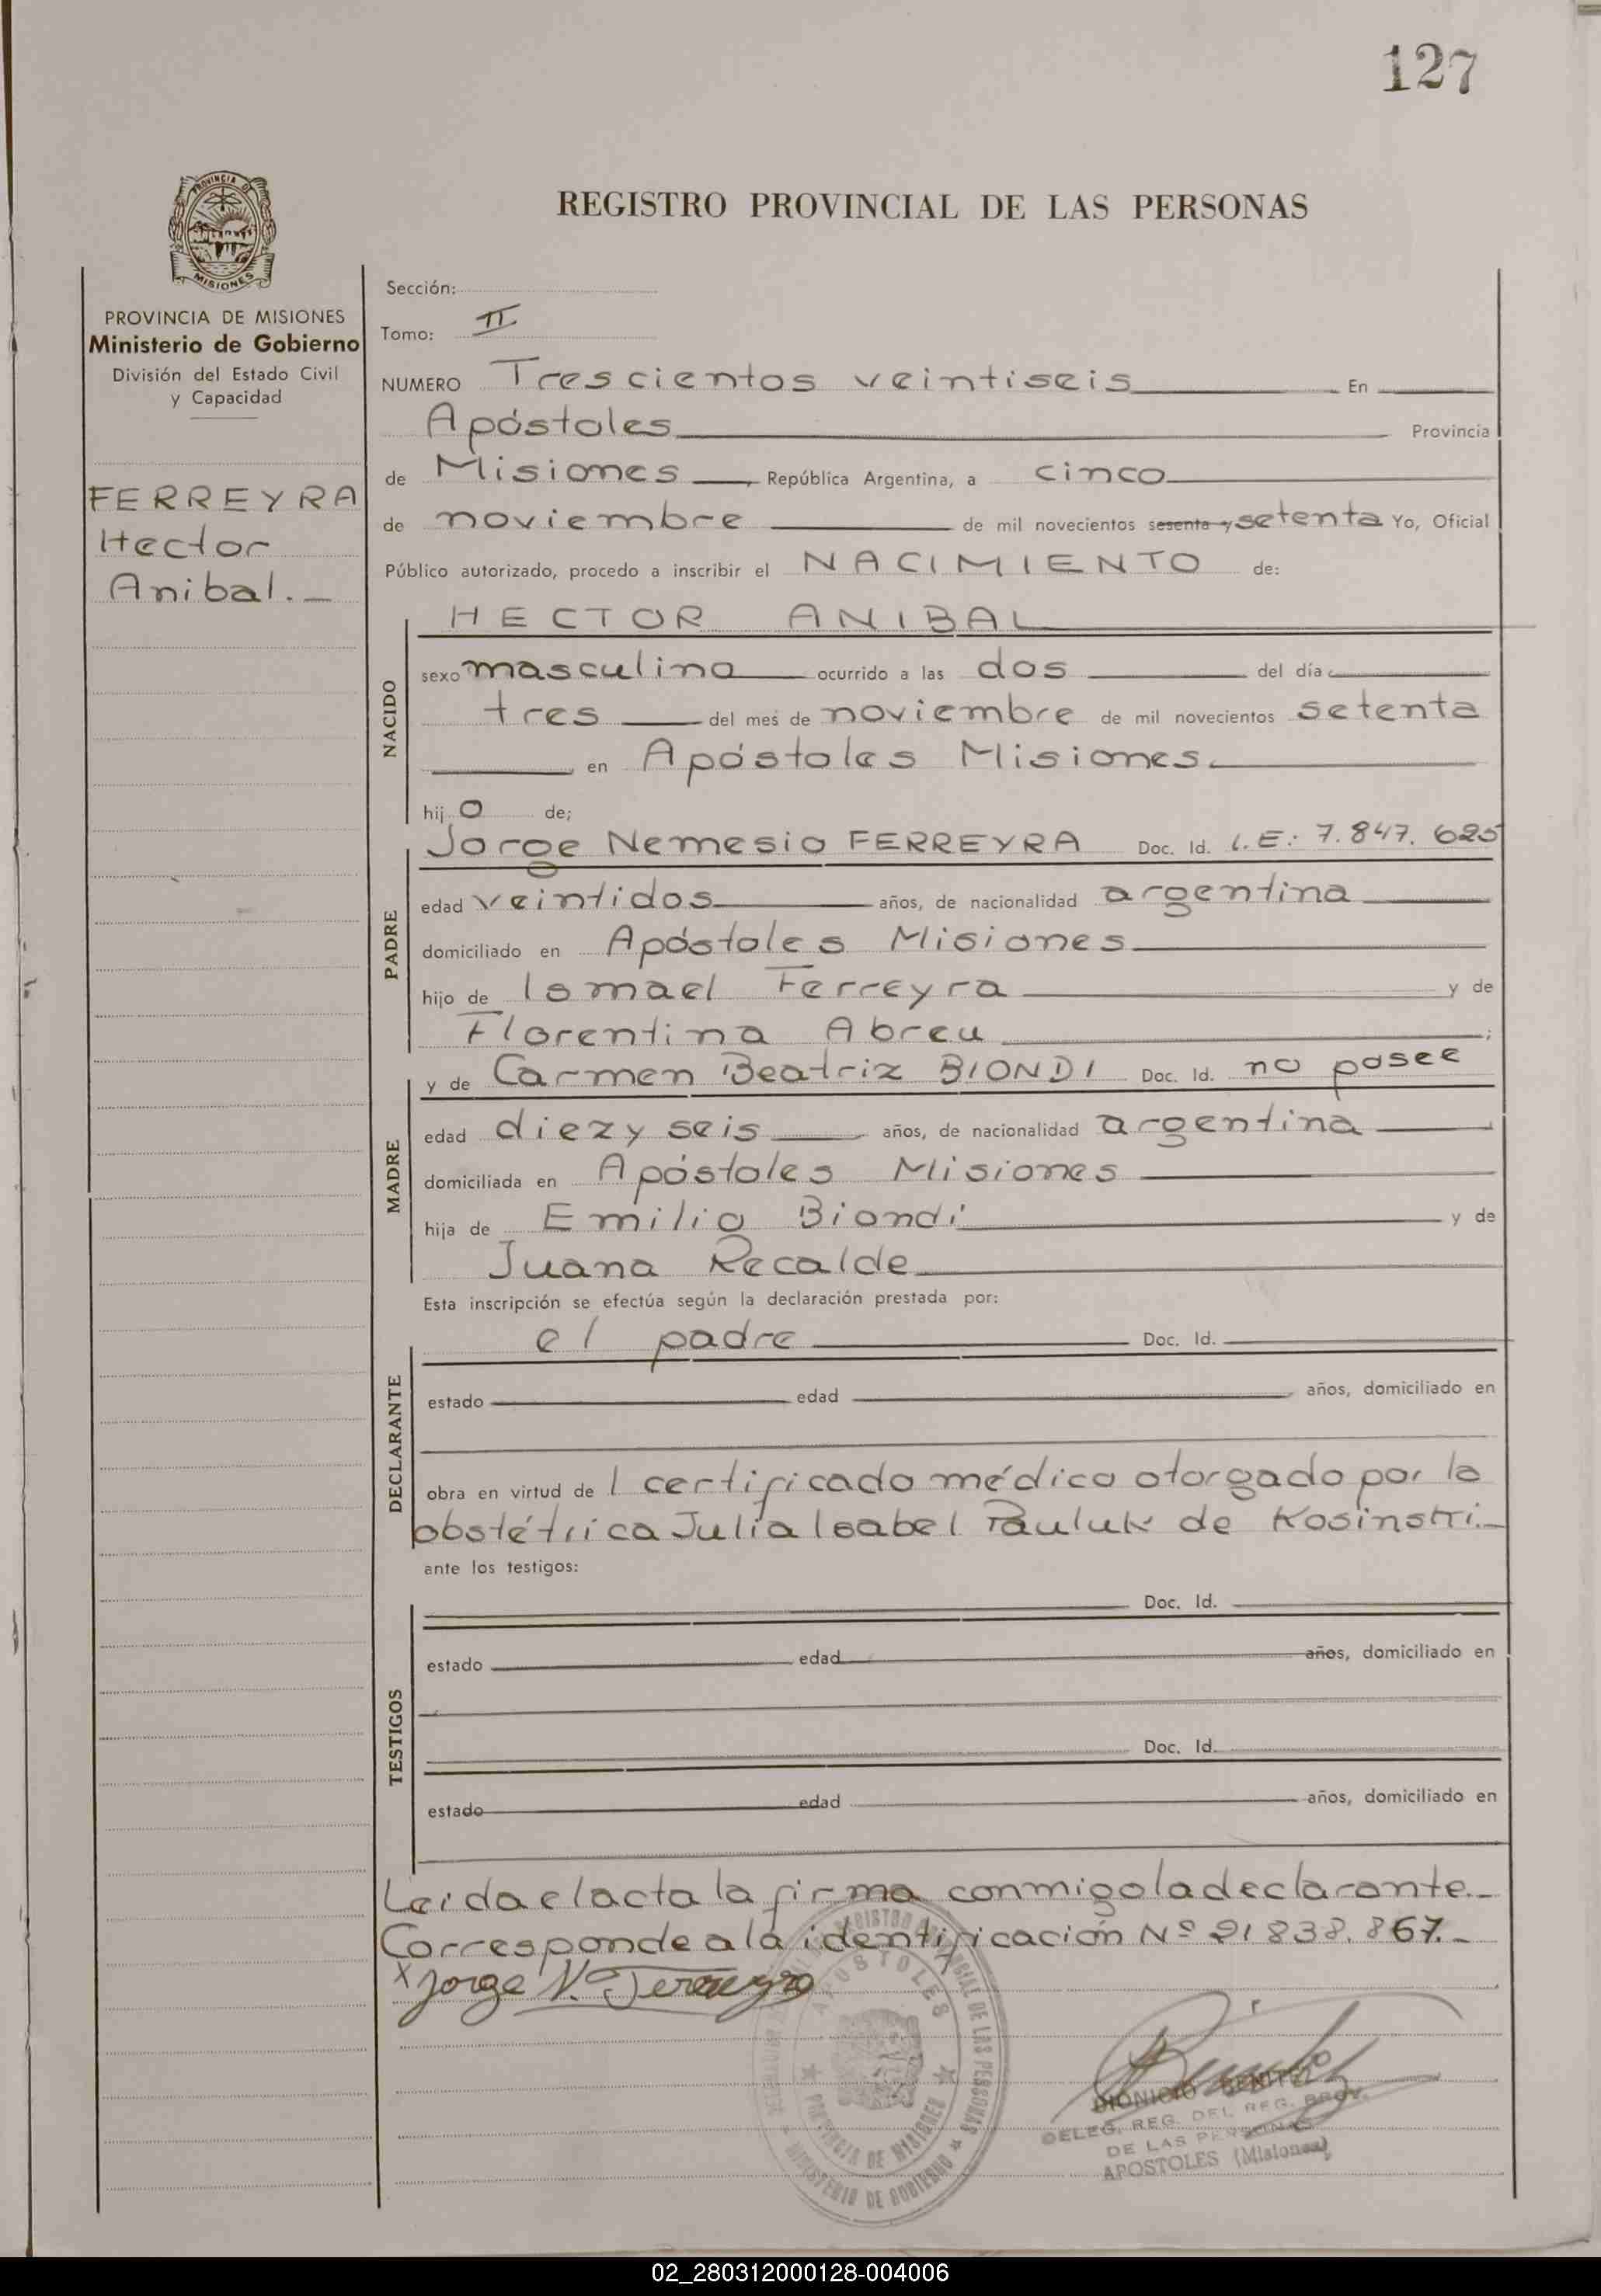 127
PROVINCIA DE
MISIONES
REGISTRO PROVINCIAL DE LAS PERSONAS
PROVINCIA DE MISIONES
Ministerio de Gobierno
División del Estado Civil
y Capacidad
FERREYRA
Hector
Anibal.
Sección:
Tomo: II
NUMERO Trescientos veintiseis En
Apóstoles Provincia
de Misiones, República Argentina, a cinco
de noviembre de mil novecientos sesenta y setenta Yo, Oficial
Público autorizado, procedo a inscribir el NACIMIENTO de:
HECTOR ANIBAL
NACIDO
sexo masculino ocurrido a las dos del día
tres del mes de noviembre de mil novecientos setenta
en Apóstoles Misiones
hijo de;
PADRE
Jorge Nemesio FERREYRA Doc. Id. L.E.: 7.847.625
edad veintidos años, de nacionalidad argentina
domiciliado en Apóstoles Misiones
hijo de Ismael Ferreyra y de
Florentina Abreu ;
MADRE
y de Carmen Beatriz BIONDI Doc. Id. no posee
edad diezy seis años, de nacionalidad argentina
domiciliada en Apóstoles Misiones
hija de Emilio Biondi y de
Juana Recalde
Esta inscripción se efectúa según la declaración prestada por:
DECLARANTE
el padre Doc. Id.
estado edad años, domiciliado en
obra en virtud de l certificado médico otorgado por la
obstétrica Julia Isabel Pauluk de Kosinski.
ante los testigos:
TESTIGOS
Doc. Id.
estado edad años, domiciliado en
Doc. Id.
estado edad años, domiciliado en
Leida el acta la firma conmigo la declarante.
Corresponde a la identificación Nº 21838.867.
x Jorge N. Ferreyra
APOSTOLES
PROVINCIA DE MISIONES
MINISTERIO DE GOBIERNO
DIONICIO BENITEZ
DELEG. REG. DEL REG. PROV.
DE LAS PERSONAS
APOSTOLES (Misiones)
02_280312000128-004006